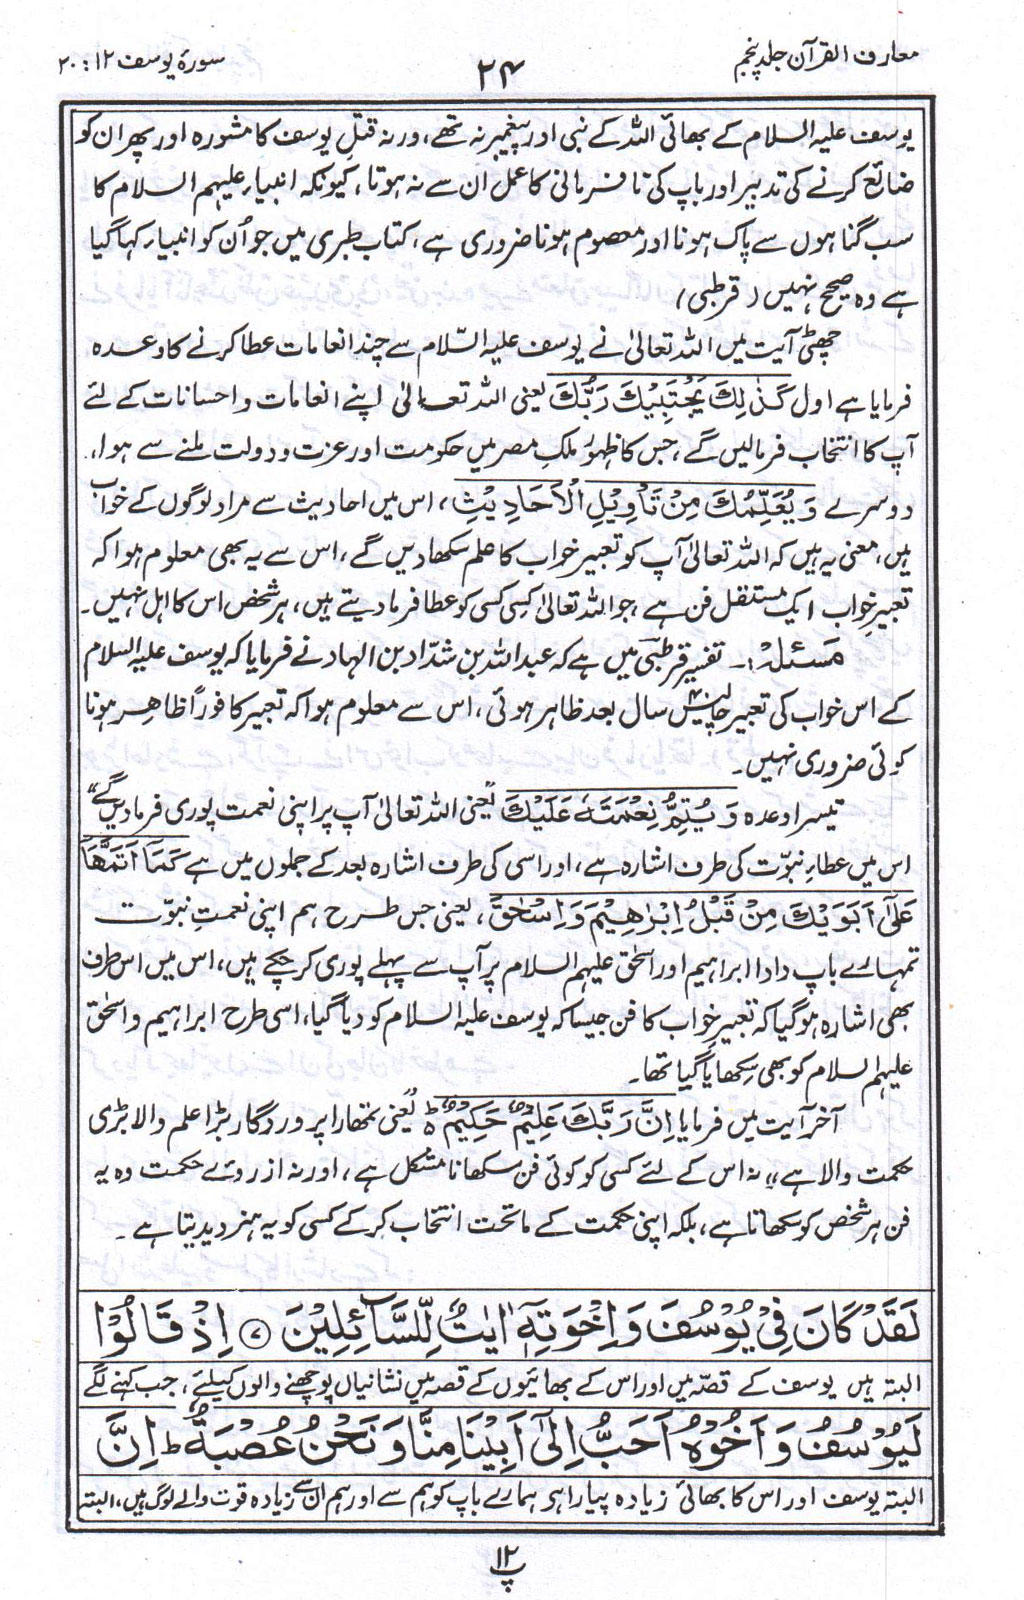 معارف القرآن جلد پنجم
۲۴
سورۂ یوسف ۱۲ : ۲۰
یوسف علیہ السلام کے بھائی اللہ کے نبی اور پیغمبر نہ تھے، ورنہ قتلِ یوسف کا مشورہ اور پھر ان کو
ضائع کرنے کی تدبیر اور باپ کی نافرمانی کا عمل ان سے نہ ہوتا، کیونکہ انبیاء علیہم السلام کا
سب گناہوں سے پاک ہونا اور معصوم ہونا ضروری ہے، کتاب طبری میں جو اُن کو انبیاء کہا گیا
ہے وہ صحیح نہیں (قرطبی)
چھٹی آیت میں اللہ تعالیٰ نے یوسف علیہ السّلام سے چند انعامات عطا کرنے کا وعدہ
فرمایا ہے اول كَذٰلِكَ يَجْتَبِيْكَ رَبُّكَ یعنی اللہ تعالیٰ اپنے انعامات و احسانات کے لئے
آپ کا انتخاب فرمالیں گے، جس کا ظہور ملکِ مصر میں حکومت اور عزت و دولت ملنے سے ہوا،
دوسرے وَيُعَلِّمُكَ مِنْ تَاْوِيْلِ الْاَحَادِيْثِ، اس میں احادیث سے مراد لوگوں کے خواب
ہیں، معنی یہ ہیں کہ اللہ تعالیٰ آپ کو تعبیر خواب کا علم سکھادیں گے، اس سے یہ بھی معلوم ہوا کہ
تعبیرِ خواب ایک مستقل فن ہے، جو اللہ تعالیٰ کسی کسی کو عطا فرما دیتے ہیں، ہر شخص اس کا اہل نہیں۔
مسئلہ:۔ تفسیر قرطبی میں ہے کہ عبداللہ بن شدّاد بن الہاد نے فرمایا کہ یوسف علیہ السلام
کے اس خواب کی تعبیر چالیس۴۰ سال بعد ظاہر ہوئی، اس سے معلوم ہوا کہ تعبیر کا فوراً ظاہر ہونا
کوئی ضروری نہیں۔
تیسرا وعدہ وَيُتِمُّ نِعْمَتَهٗ عَلَيْكَ "یعنی اللہ تعالیٰ آپ پر اپنی نعمت پوری فرمادیں گے"
اس میں عطاءِ نبوّت کی طرف اشارہ ہے، اور اسی کی طرف اشارہ بعد کے جملوں میں ہے كَمَآ اَتَمَّهَا
عَلٰٓى اَبَوَيْكَ مِنْ قَبْلُ اِبْرٰهِيْمَ وَاِسْحٰقَ، یعنی جس طرح ہم اپنی نعمتِ نبوّت
تمہارے باپ دادا ابراہیم اور اسحٰق علیہم السلام پر آپ سے پہلے پوری کر چکے ہیں، اس میں اس طرف
بھی اشارہ ہو گیا کہ تعبیرِ خواب کا فن جیسا کہ یوسف علیہ السلام کو دیا گیا، اسی طرح ابراہیم و اسحٰق
علیہم السلام کو بھی سکھایا گیا تھا۔
آخر آیت میں فرمایا اِنَّ رَبَّكَ عَلِيْمٌ حَكِيْمٌ ط "یعنی تمھارا پروردگار بڑا علم والا بڑی
حکمت والا ہے" نہ اس کے لئے کسی کو کوئی فن سکھانا مشکل ہے، اور نہ از روئے حکمت وہ یہ
فن ہر شخص کو سکھاتا ہے، بلکہ اپنی حکمت کے ماتحت انتخاب کرکے کسی کو یہ ہنر دیدیتا ہے۔
لَقَدْ كَانَ فِيْ يُوْسُفَ وَاِخْوَتِهٖٓ اٰيٰتٌ لِّلسَّآئِلِيْنَ ۷ اِذْ قَالُوْا
البتہ ہیں یوسف کے قصّہ میں اور اس کے بھائیوں کے قصہ میں نشانیاں پوچھنے والوں کیلئے، جب کہنے لگے
لَيُوْسُفُ وَاَخُوْهُ اَحَبُّ اِلٰٓى اَبِيْنَا مِنَّا وَنَحْنُ عُصْبَةٌ ط اِنَّ
البتہ یوسف اور اس کا بھائی زیادہ پیارا ہی ہمارے باپ کو ہم سے اور ہم ان سے زیادہ قوت والے لوگ ہیں، البتہ
۱۲
پ